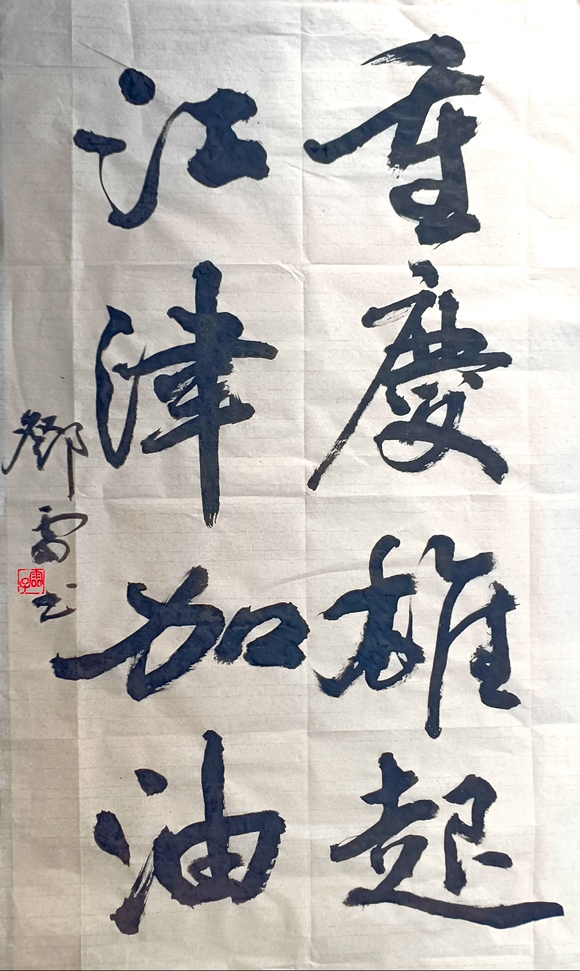 重慶雄起
江津加油
鄧雷书